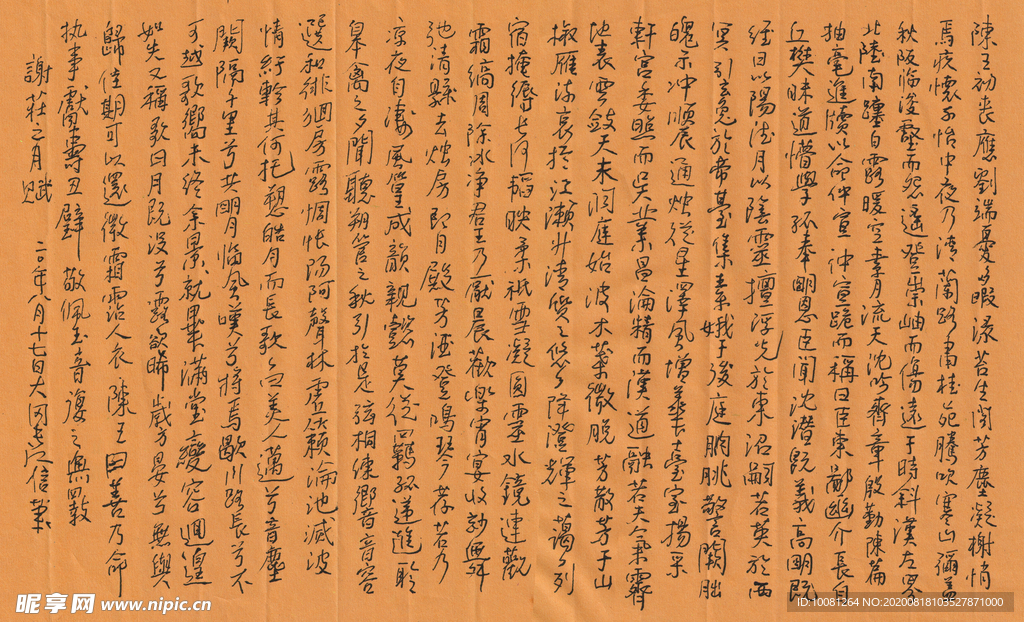 陳王初喪應劉端憂多暇淥苔生閣芳塵凝榭悄
焉疚懷不怡中夜乃清蘭路肅桂苑騰吹寒山弭蓋
秋阪臨浚壑而怨遙登崇岫而傷遠于時斜漢左界
北陸南躔白露暖空素月流天沈吟齊章殷勤陳篇
抽毫進牘以命仲宣仲宣跪而稱曰臣東鄙幽介長自
丘樊昧道懵學孤奉明恩臣聞沈潛既義高明既
經日以陽德月以陰靈擅浮光於東沼嗣若英於西
冥引玄兔於帝臺集素娥于後庭朒朓警闕朏
魄示沖順晨通燭從星澤風增華臺室揚采
軒宮委照而吳業昌淪精而漢道融若夫氣霽
地表雲斂天末洞庭始波木葉微脫芳散芳于山
椒雁流哀於江瀨升清質之悠々降澄輝之藹々列
宿掩縟長河韜映柔祇雪凝圓靈水鏡連觀
霜縞周除冰淨君王乃厭晨歡樂宵宴收妙舞
弛清縣去燭房即月殿芳酒登鳴琴荐若乃
涼夜自凄風篁成韻親懿莫從羈孤遞進聆
皋禽之夕聞聽朔管之秋引於是弦桐練響音容
選和徘徊房露惆悵陽阿聲林虛籟淪池滅波
情紆軫其何托愬皓月而長歌々曰美人邁兮音塵
闕隔千里兮共明月臨風嘆兮將焉歇川路長兮不
可越歌響未終余景就畢滿堂變容迴遑
如失又稱歌曰月既沒兮露欲晞歲方晏兮無與
歸佳期可以還微霜霑人衣陳王曰善乃命
执事獻壽丑璧敬佩玉音復之無斁
謝莊之月賦
二〇年八月十七日大同信筆
昵享网 www.nipic.cn
ID:10081264 NO:20200818103527871000